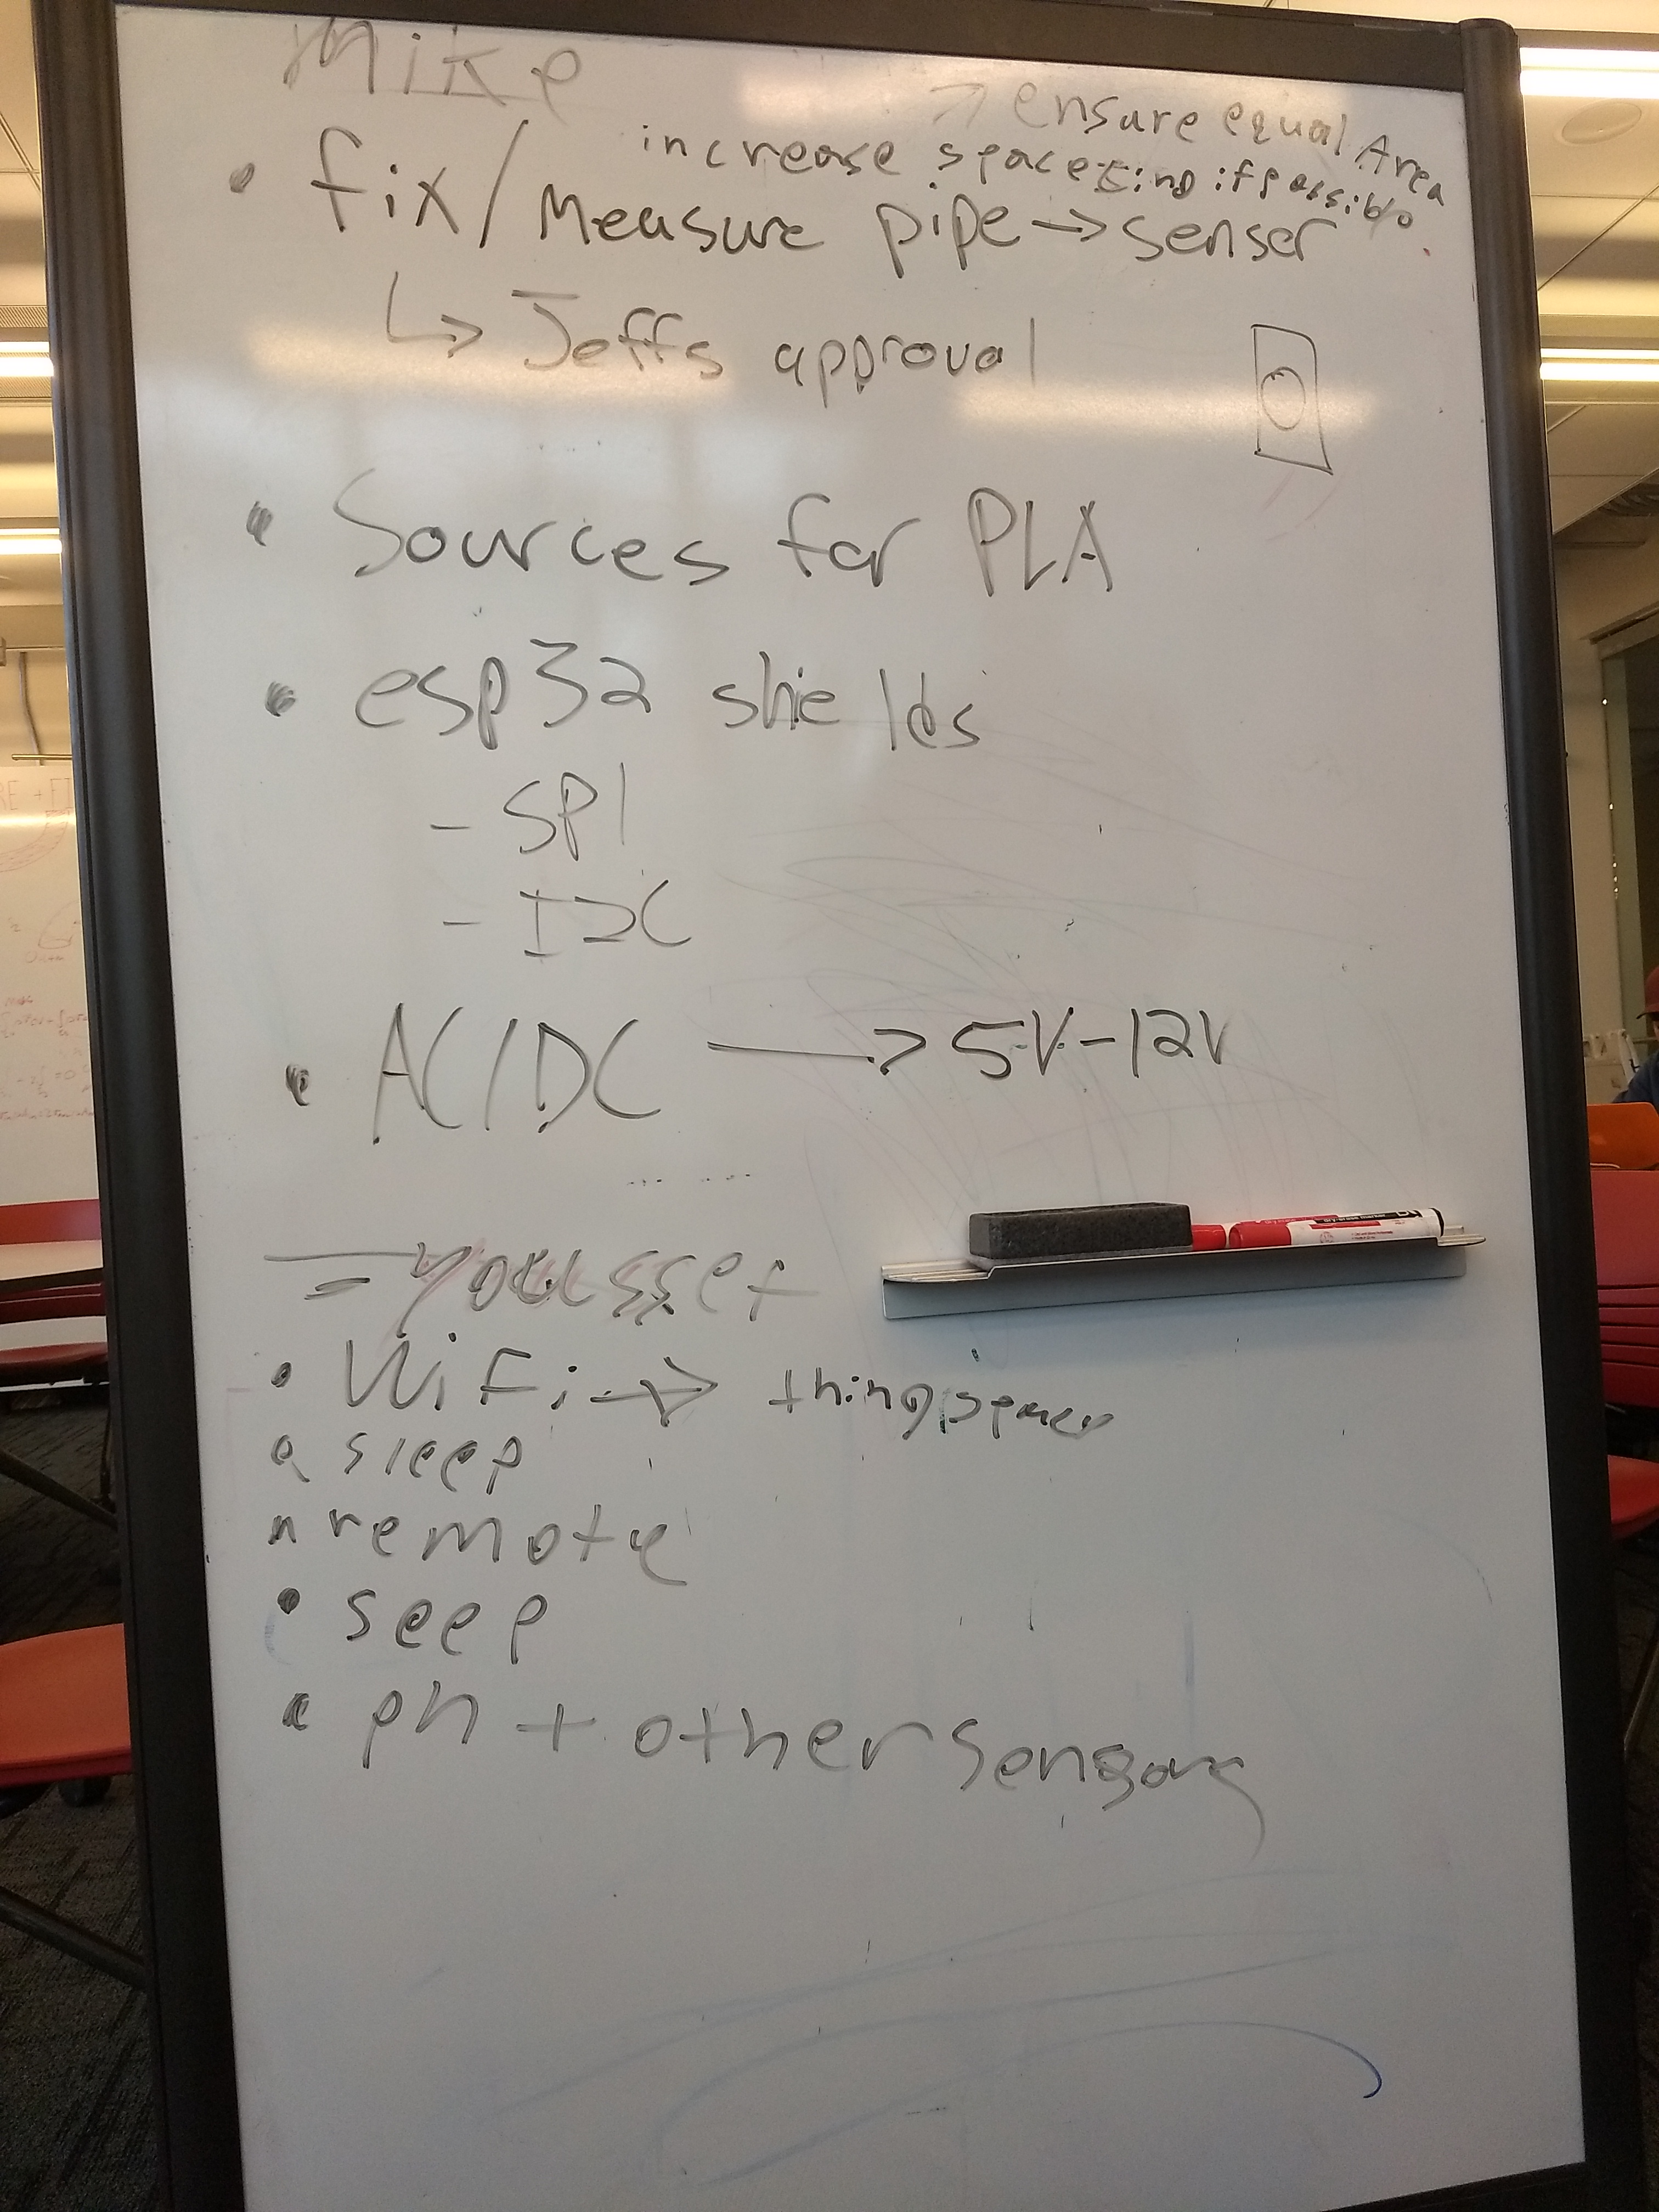 Mike
→ ensure equal Area
increase space if possible
• fix/Measure pipe → senser
↳ Jeffs approval
• Sources for PLA
• esp32 shields
- SPI
- I2C
• AC/DC → 5V-12V
youssef
• WiFi →
sleep
remote
• seep
• ph + other sensors